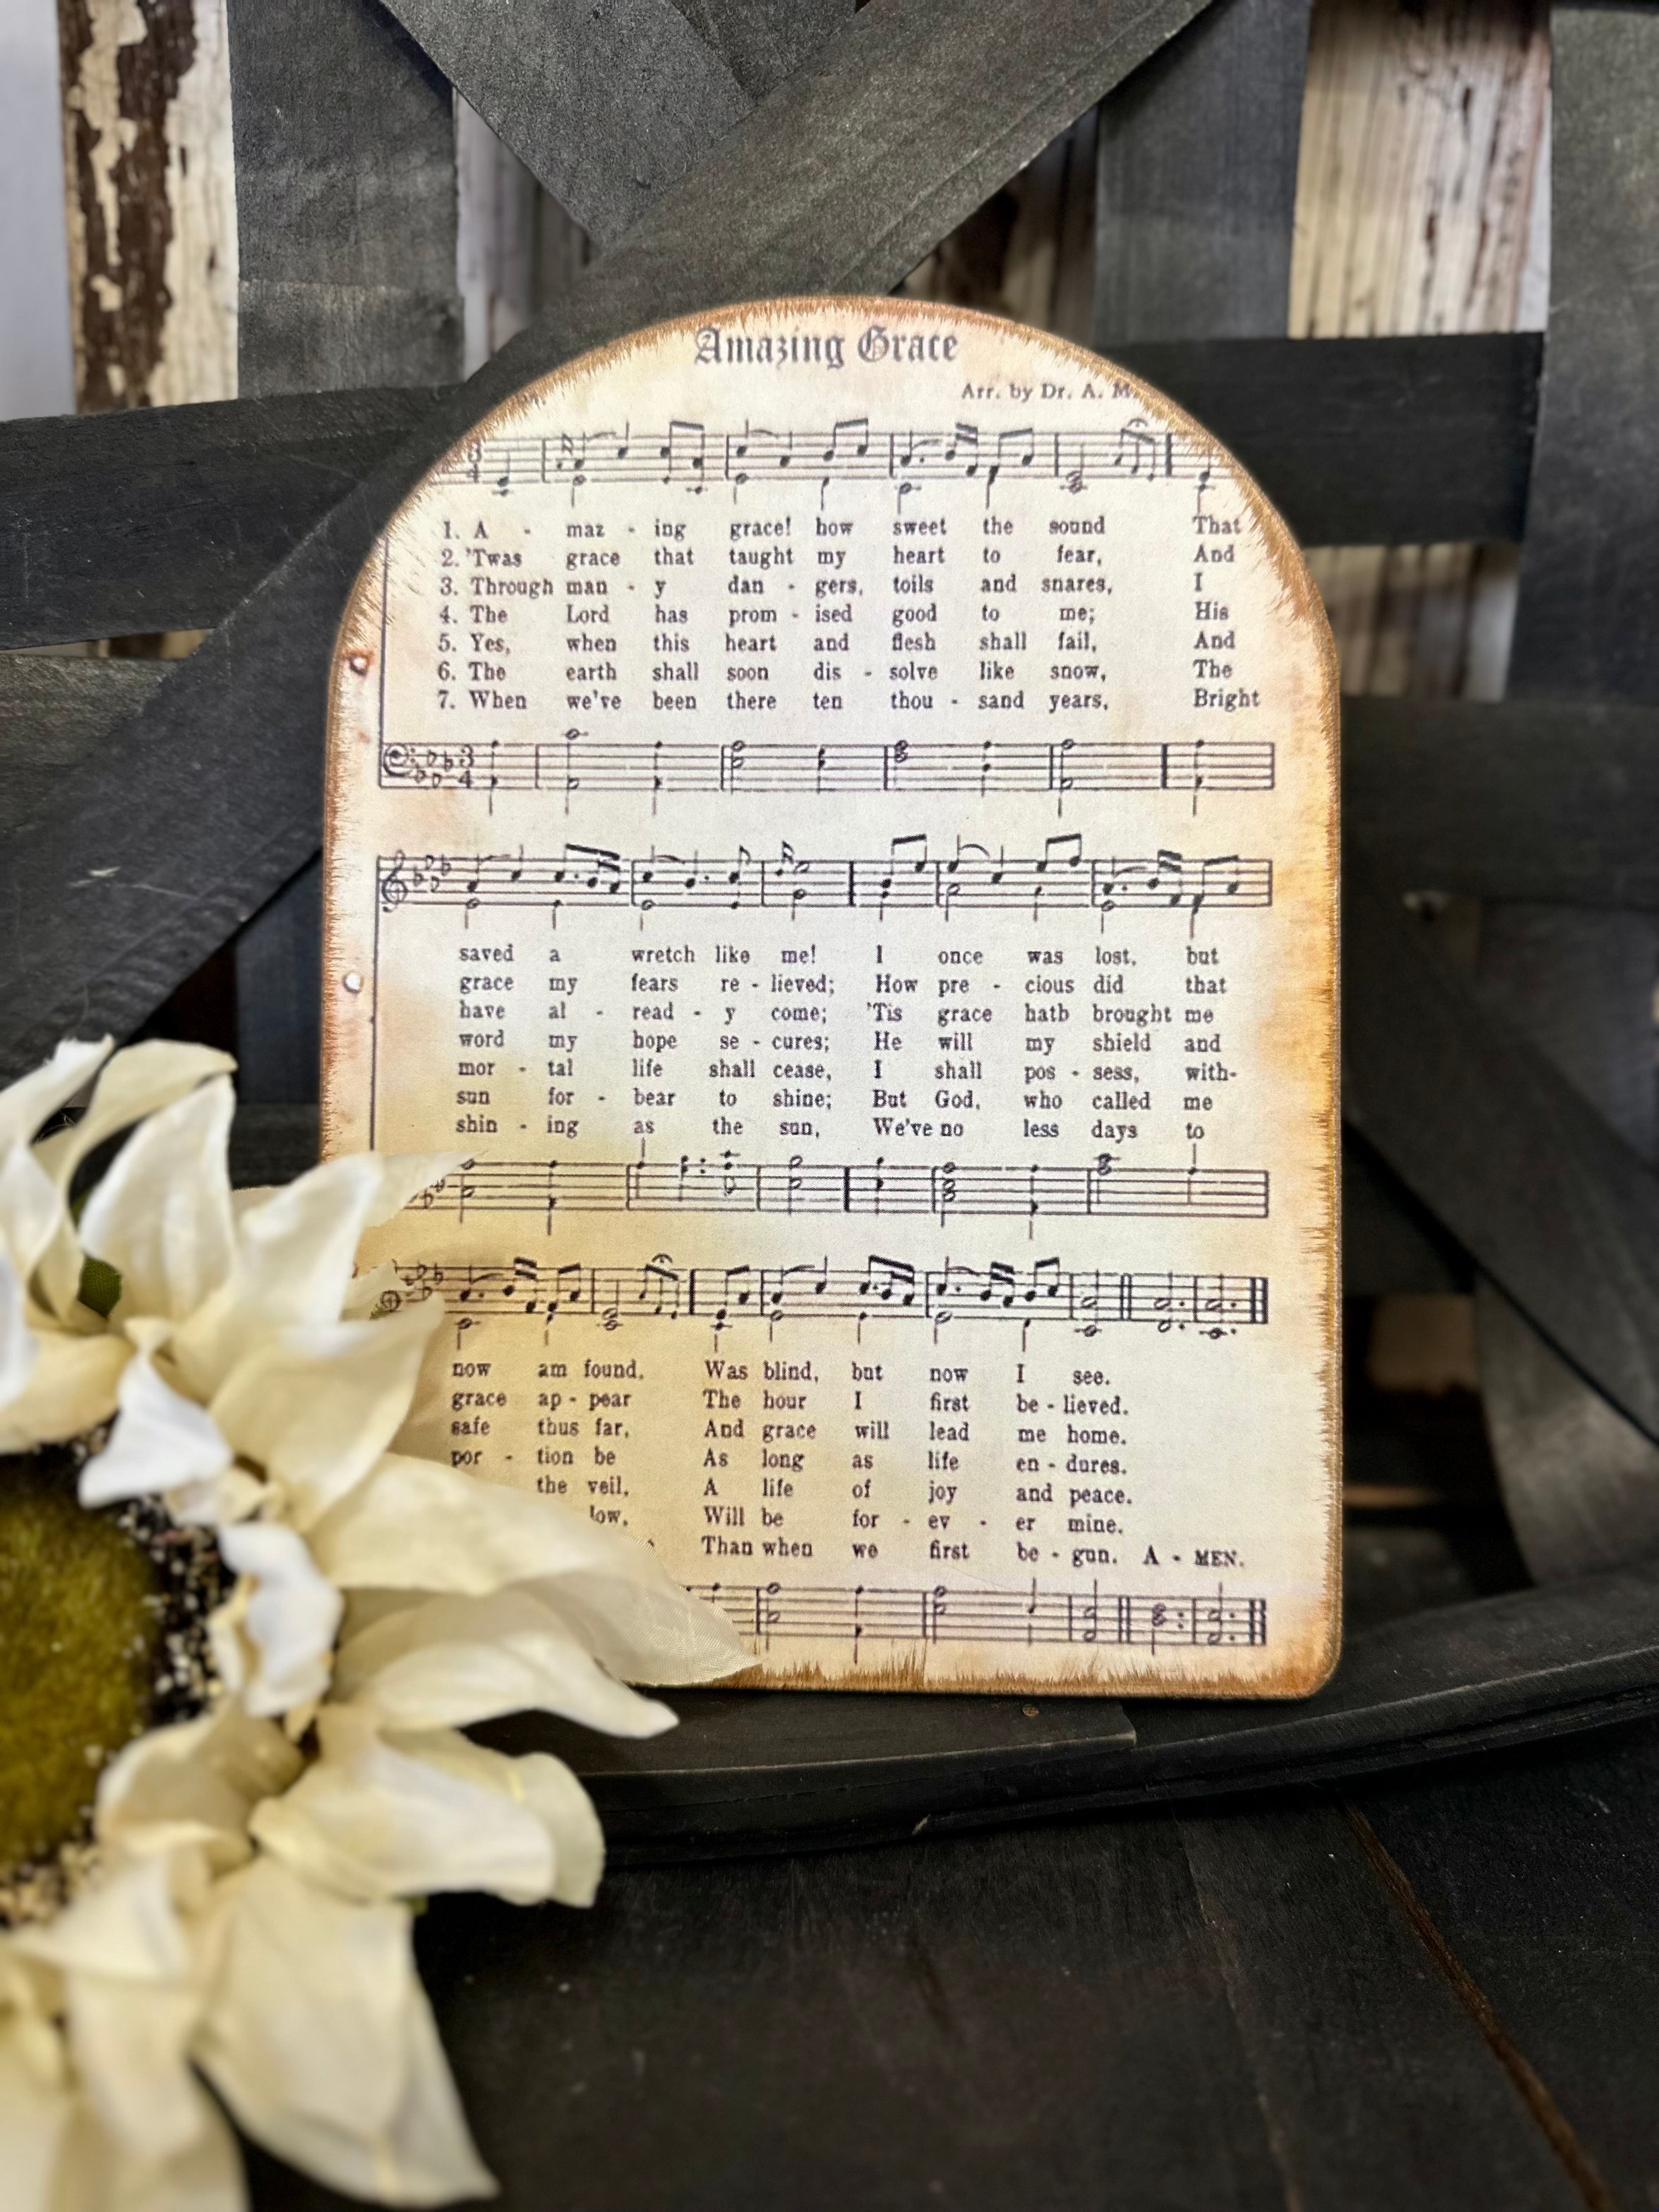 Amazing Grace
Arr. by Dr. A. M.
3
4
1. A - maz - ing grace! how sweet the sound That
2. 'Twas grace that taught my heart to fear, And
3. Through man - y dan - gers, toils and snares, I
4. The Lord has prom - ised good to me; His
5. Yes, when this heart and flesh shall fail, And
6. The earth shall soon dis - solve like snow, The
7. When we've been there ten thou - sand years, Bright
3
4
saved a wretch like me! I once was lost, but
grace my fears re - lieved; How pre - cious did that
have al - read - y come; 'Tis grace hath brought me
word my hope se - cures; He will my shield and
mor - tal life shall cease, I shall pos - sess, with-
sun for - bear to shine; But God, who called me
shin - ing as the sun, We've no less days to
now am found, Was blind, but now I see.
grace ap - pear The hour I first be - lieved.
safe thus far, And grace will lead me home.
por - tion be As long as life en - dures.
the veil, A life of joy and peace.
low, Will be for - ev - er mine.
Than when we first be - gun. A - MEN.